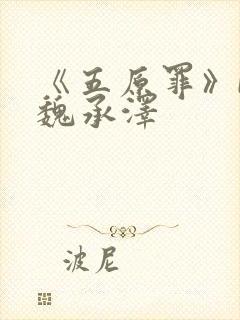 《五原罪》
魏承澤
波尼